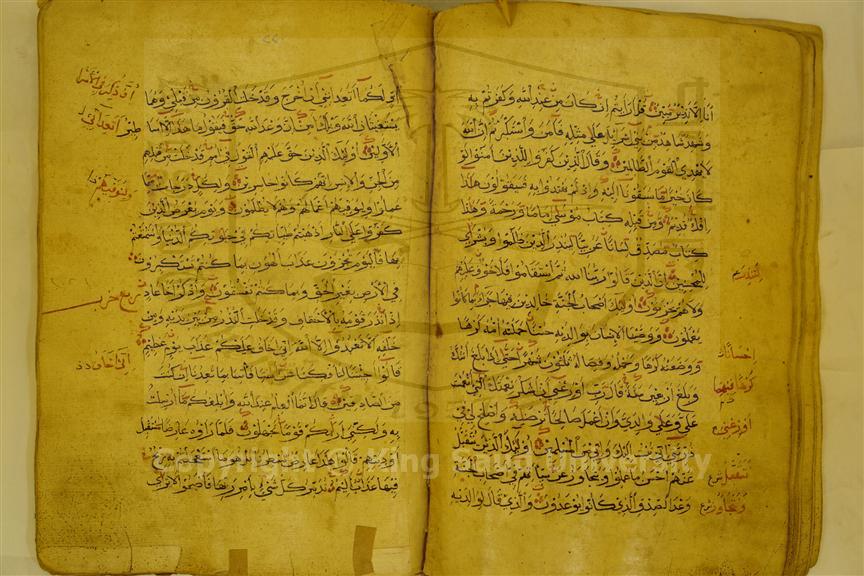 أنا إلا نذير مبين قل أرأيتم إن كان من عند الله وكفرتم به
وشهد شاهد من بني إسرائيل على مثله فآمن واستكبرتم إن الله
لا يهدي القوم الظالمين وقال الذين كفروا للذين آمنوا لو
كان خيرا ما سبقونا إليه وإذ لم يهتدوا به فسيقولون هذا
إفك قديم ومن قبله كتاب موسى إماما ورحمة وهذا
كتاب مصدق لسانا عربيا لتنذر الذين ظلموا وبشرى
للمحسنين إن الذين قالوا ربنا الله ثم استقاموا فلا خوف عليهم
ولا هم يحزنون أولئك أصحاب الجنة خالدين فيها جزاء بما كانوا
يعملون ووصينا الإنسان بوالديه حسنا حملته أمه كرها
ووضعته كرها وحمله وفصاله ثلثون شهرا حتى إذا بلغ أشده
وبلغ أربعين سنة قال رب أوزعني أن أشكر نعمتك التي أنعمت
علي وعلى والدي وأن أعمل صالحا ترضيه وأصلح لي في
ذريتي إني تبت إليك وإني من المسلمين أولئك الذين يتقبل
عنهم أحسن ما عملوا ويتجاوز عن سيئاتهم في أصحاب الجنة
وعد الصدق الذي كانوا يوعدون والذي قال لوالديه
إحسانا
كرها فيهما
أوزعني
نتقبل
ونتجاوز
أف لكما أتعدانني أن أخرج وقد خلت القرون من قبلي وهما
يستغيثان الله ويلك آمن إن وعد الله حق فيقول ما هذا إلا أساطير
الأولين أولئك الذين حق عليهم القول في أمم قد خلت من قبلهم
من الجن والإنس إنهم كانوا خاسرين ولكل درجات مما
عملوا وليوفيهم أعمالهم وهم لا يظلمون ويوم يعرض الذين
كفروا على النار أذهبتم طيباتكم في حياتكم الدنيا واستمتعتم
بها فاليوم تجزون عذاب الهون بما كنتم تستكبرون
في الأرض بغير الحق وبما كنتم تفسقون واذكر أخا عاد
إذ أنذر قومه بالأحقاف وقد خلت النذر من بين يديه ومن
خلفه ألا تعبدوا إلا الله إني أخاف عليكم عذاب يوم عظيم
قالوا أجئتنا لتأفكنا عن آلهتنا فأتنا بما تعدنا إن كنت
من الصادقين قال إنما العلم عند الله وأبلغكم ما أرسلت
به ولكني أراكم قوما تجهلون فلما رأوه عارضا مستقبل
أوديتهم قالوا هذا عارض ممطرنا بل هو ما استعجلتم به ريح
فيها عذاب أليم تدمر كل شيء بأمر ربها فأصبحوا لا ترى
أتعدانني
ولنوفيهم
ربع حزب
إني أخاف
Copyright © King Saud University